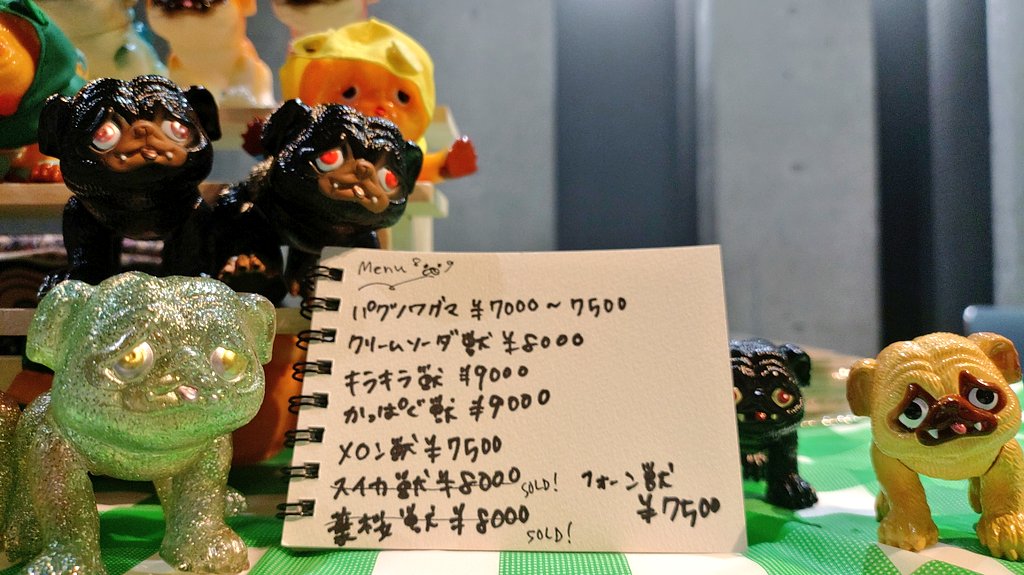 Menu
パグノワグマ ¥7000～7500
クリームソーダ獣 ¥8000
キラキラ獣 ¥9000
かっぱぐ獣 ¥9000
メロン獣 ¥7500
スイカ獣 ¥8000 SOLD!
葉桜獣 ¥8000 SOLD!
フォーン獣
¥7500